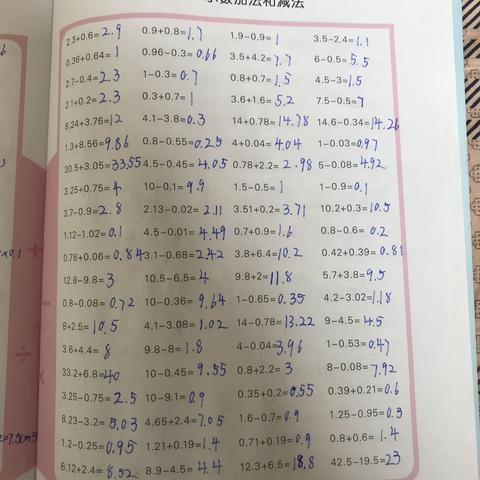 小数加法和减法
2.3+0.6=2.9 0.9+0.8=1.7 1.9-0.9=1 3.5-2.4=1.1
0.36+0.64=1 0.96-0.3=0.66 3.5+4.2=7.7 6-0.5=5.5
2.7-0.4=2.3 1-0.3=0.7 0.8+0.7=1.5 4.5-3=1.5
2.1+0.2=2.3 0.3+0.7=1 3.6+1.6=5.2 7.5-0.5=7
8.24+3.76=12 4.1-3.8=0.3 14+0.78=14.78 14.6-0.34=14.26
1.3+8.56=9.86 0.8-0.55=0.25 4+0.04=4.04 1-0.03=0.97
30.5+3.05=33.55 4.5-0.45=4.05 0.78+2.2=2.98 5-0.08=4.92
3.25+0.75=4 10-0.1=9.9 1.5-0.5=1 1-0.9=0.1
3.7-0.9=2.8 2.13-0.02=2.11 3.51+0.2=3.71 10.2+0.3=10.5
1.12-1.02=0.1 4.5-0.01=4.49 0.7+0.9=1.6 0.8-0.6=0.2
0.78+0.06=0.84 3.1-0.68=2.42 3.8+6.4=10.2 0.42+0.39=0.81
12.8-9.8=3 10.5-6.5=4 9.8+2=11.8 5.7+3.8=9.5
0.8-0.08=0.72 10-0.36=9.64 1-0.65=0.35 4.2-3.02=1.18
8+2.5=10.5 4.1-3.08=1.02 14-0.78=13.22 9-4.5=4.5
3.6+4.4=8 9.8-8=1.8 4-0.04=3.96 1-0.53=0.47
33.2+6.8=40 10-0.45=9.55 0.8+2.2=3 8-0.08=7.92
3.25-0.75=2.5 10-9.1=0.9 0.35+0.2=0.55 0.39+0.21=0.6
8.23-3.2=5.03 4.65+2.4=7.05 1.6-0.7=0.9 1.25-0.95=0.3
1.2-0.25=0.95 1.21+0.19=1.4 0.71+0.19=0.9 0.8+0.6=1.4
6.12+2.4=8.52 8.9-4.5=4.4 12.3+6.5=18.8 42.5-19.5=23